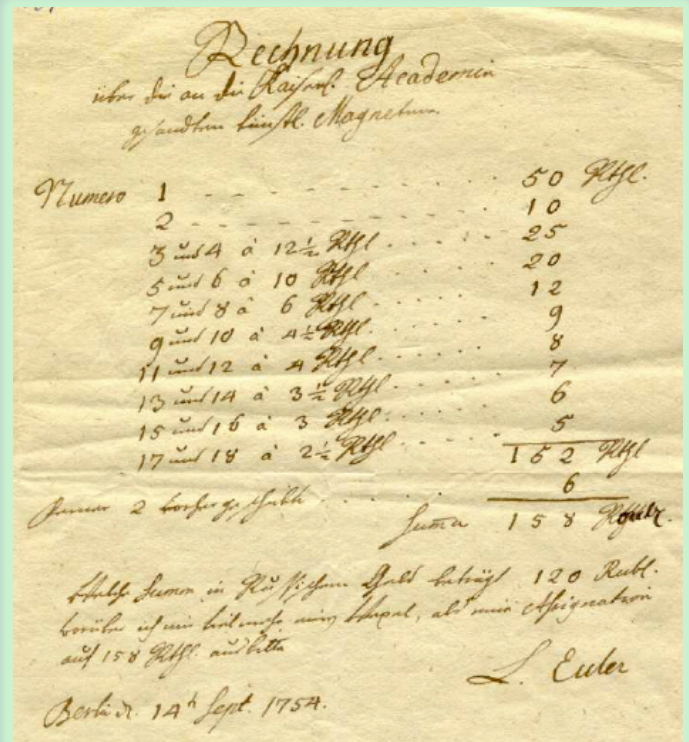 Rechnung
über die an die Kaiserl. Academie
gesandten künstl. Magneten
Numero 1 50 Rthl.
2 10
3 und 4 à 12½ Rthl 25
5 und 6 à 10 Rthl 20
7 und 8 à 6 Rthl 12
9 und 10 à 4½ Rthl. 9
11 und 12 à 4 Rthl. 8
13 und 14 à 3½ Rthl. 7
15 und 16 à 3 Rthl. 6
17 und 18 à 2½ Rthl 5
152 Rthl
Ferner 2 vorher geschickte 6
Summa 158 Rthlr.
Welche Summ in Russischem Geld beträgt 120 Rubl.
worüber ich mir vielmehr einen Wexel, als eine Assignation
auf 158 Rthl. ausbitte
L. Euler
Berlin d. 14ᵗ Sept. 1754.